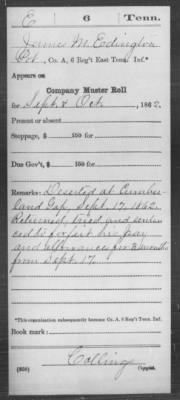 E | 6 | Tenn.
James M. Edington
Pvt., Co. A, 6 Reg't East Tenn. Inf.*
Appears on
Company Muster Roll
for Sept & Oct, 1862.
Present or absent
Stoppage, $ 100 for
Due Gov't, $ 100 for
Remarks: Deserted at Cumber
land Gap, Sept. 17, 1862.
Returned, tried and senten
ced to forfeit his pay
and allowances for 3 months
from Sept. 17.
*This organization subsequently became Co. A, 6 Reg't Tenn. Inf.
Book mark:
Colling
(358) Copyist.